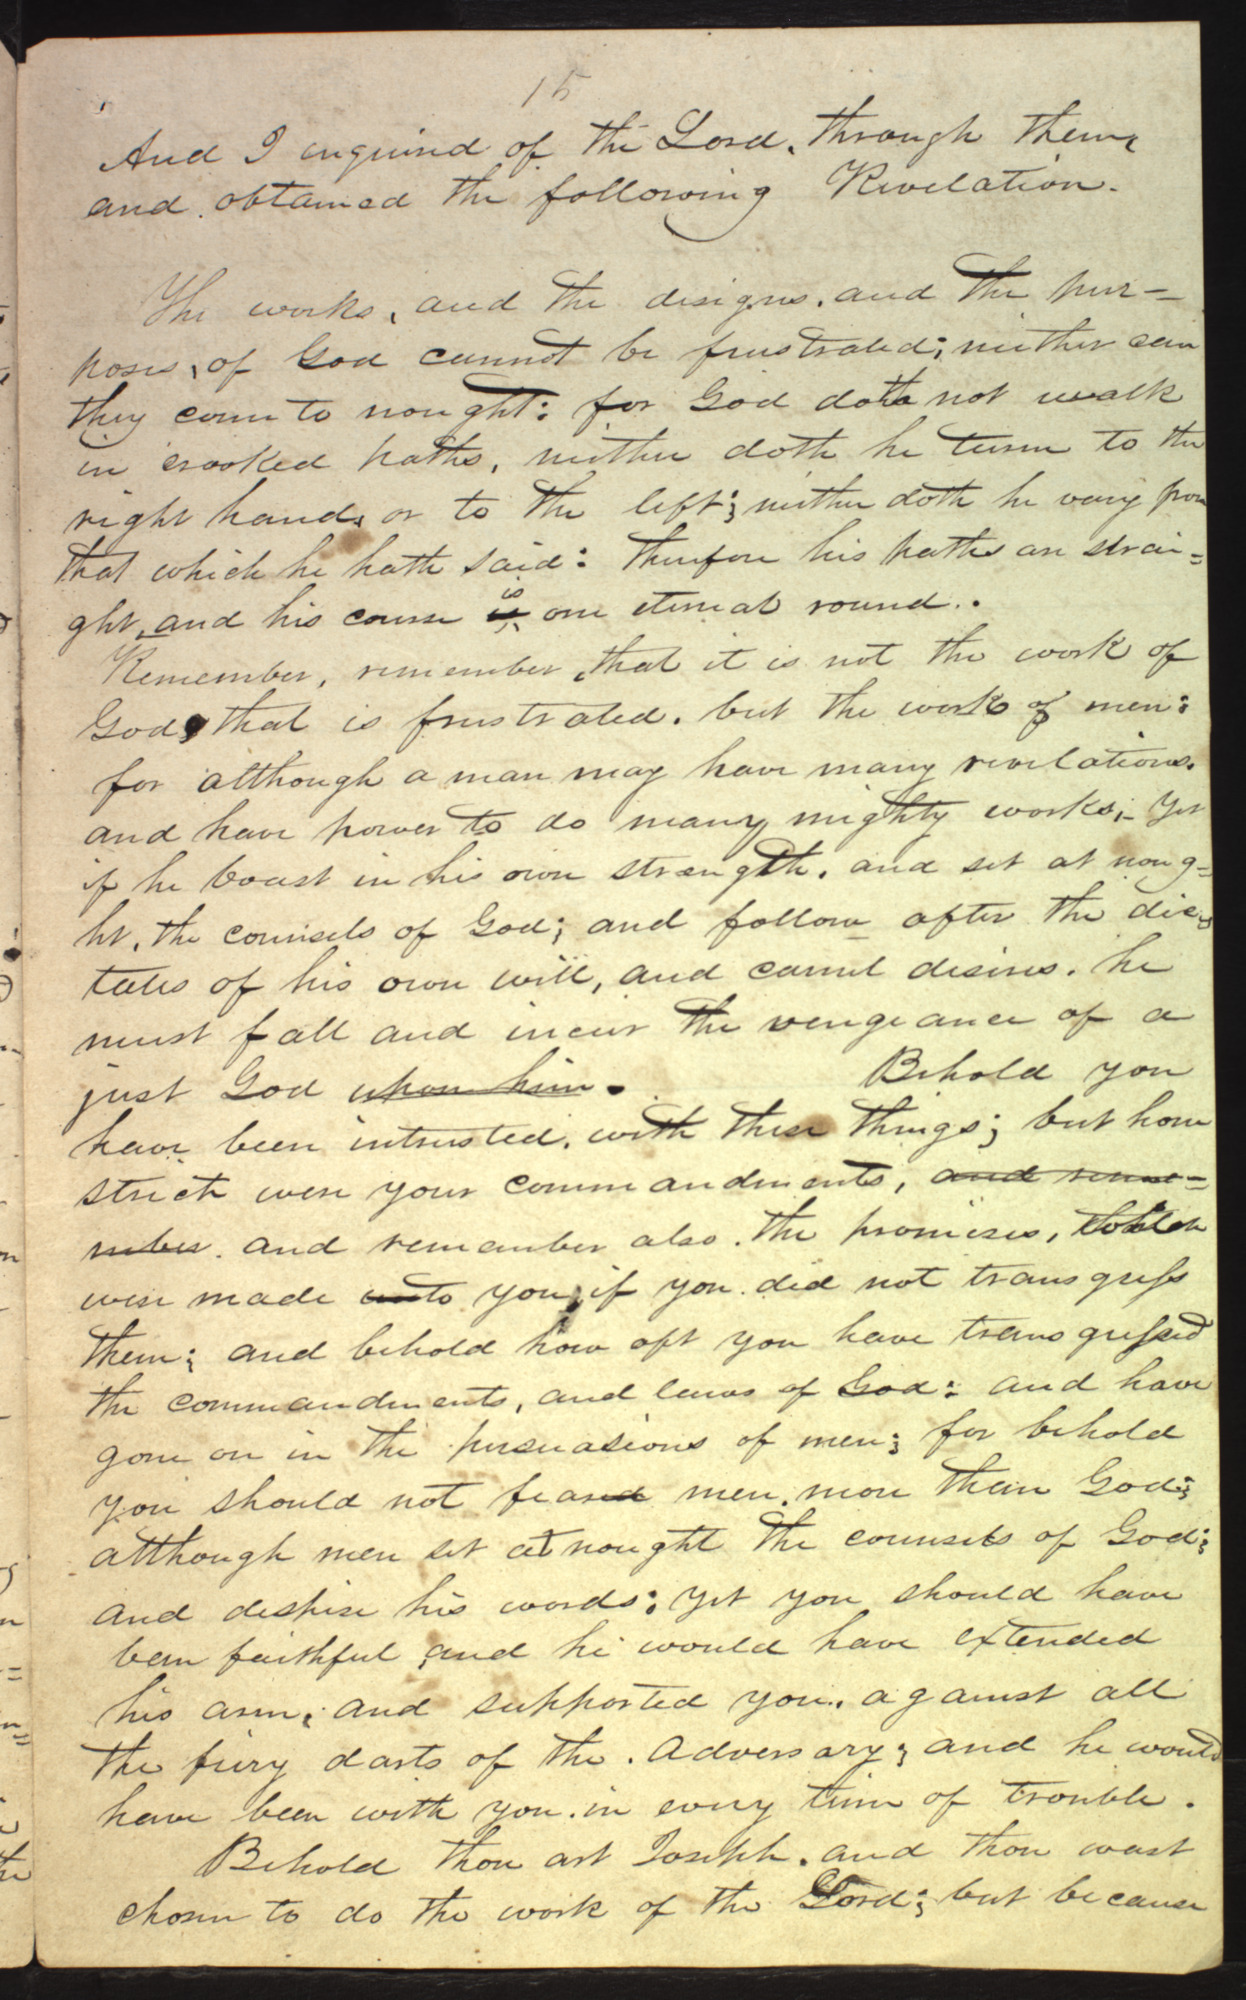 15
And I inquired of the Lord, through them,
and obtained the following Revelation.
The works, and the designs, and the pur=
poses, of God cannot be frustrated; neither can
they come to nought: for God doth not walk
in crooked paths, neither doth he turn to the
right hand, or to the left; neither doth he vary from
that which he hath said: therefore his paths are strai=
ght, and his course is one eternal round.
Remember, remember, that it is not the work of
God, that is frustrated, but the work of men:
for although a man may have many revelations,
and have power to do many mighty works; yet
if he boast in his own strength, and set at noug=
ht, the counsels of God; and follow after the dic=
tates of his own will, and carnel desires, he
must fall and incur the vengeance of a
just God upon him. Behold you
have been intrusted, with these things; but how
strict were your commandments, and reme=
mber and remember also, the promises, which
were made unto you, if you did not transgress
them; and behold how oft you have transgressed
the commandments, and laws of God: and have
gone on in the persuasions of men; for behold
you should not feared men, more than God;
although men set at nought the counsels of God;
and despise his words; yet you should have
been faithful and he would have extended
his arm, and supported you, against all
the fiery darts of the Adversary; and he would
have been with you in every time of trouble.
Behold thou art Joseph, and thou wast
chosen to do the work of the Lord; but because